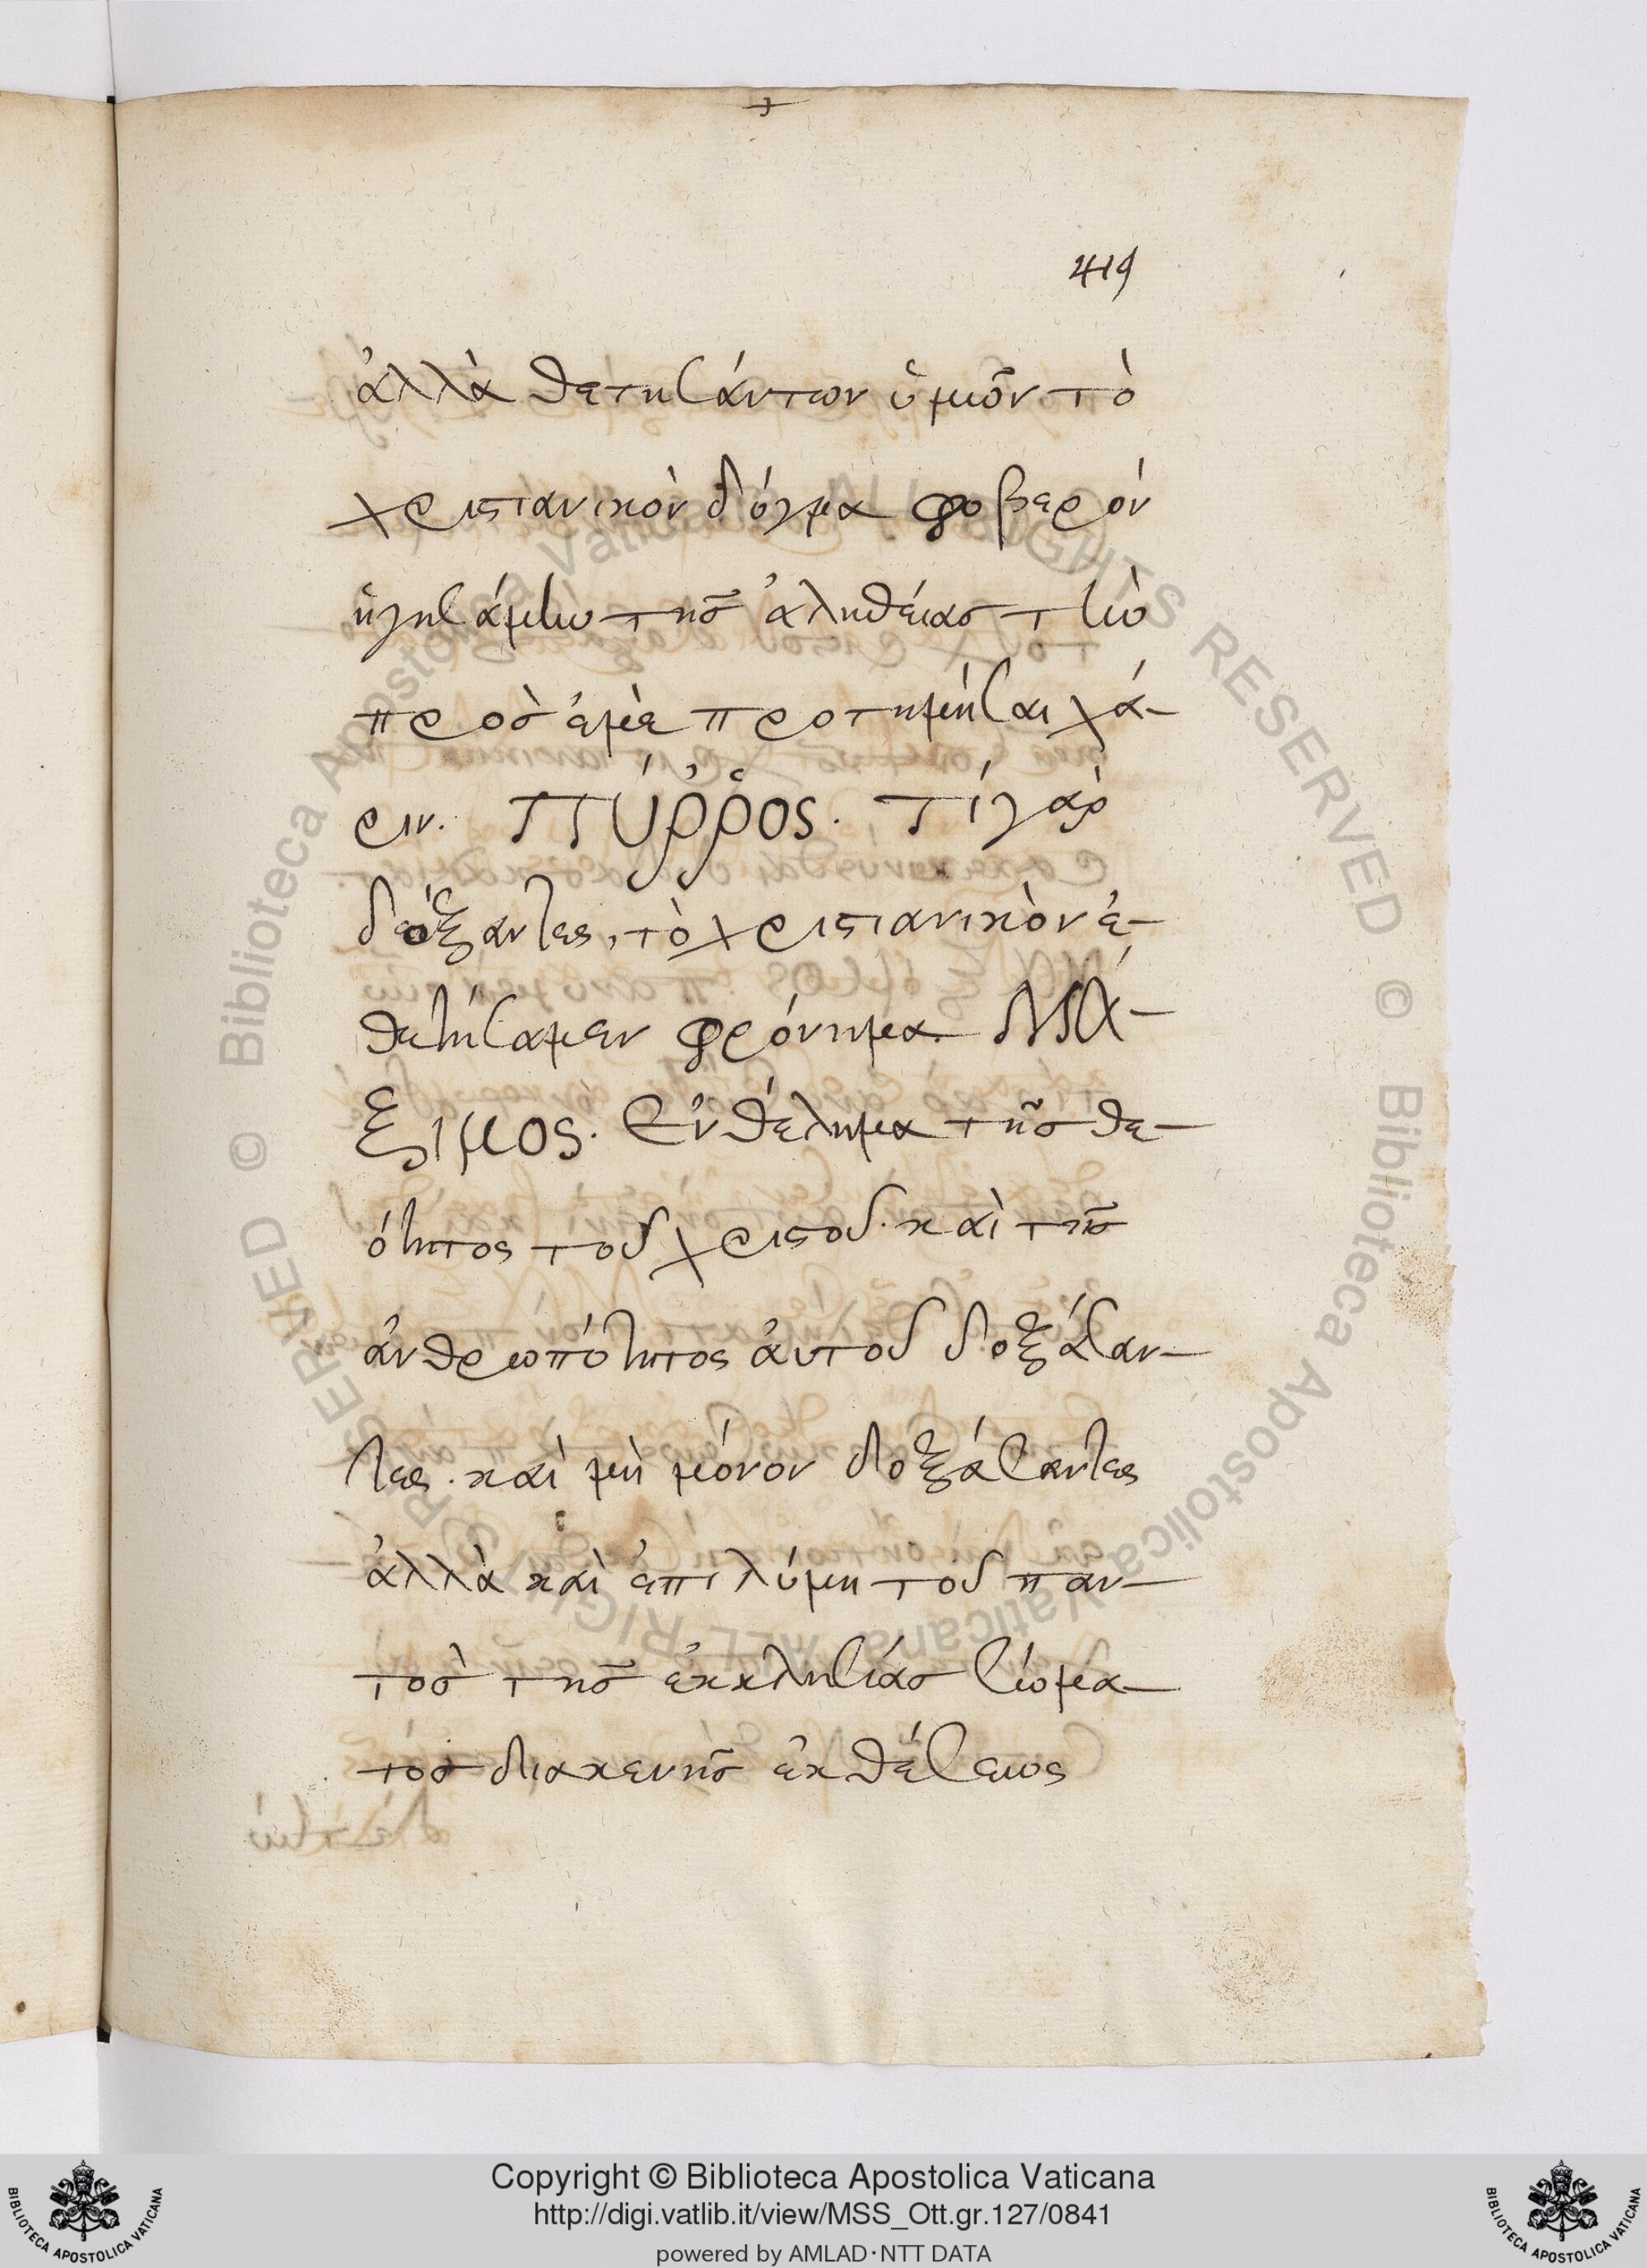 419
ἀλλὰ θετησάντων ὑμῶν τὸ
χριστιανικὸν δόγμα φοβερὸν
ἡγησάμην τῆς ἀληθείας τὴν
πρὸς ἐμὲ προτημήσαι χά-
ριν. ΠΎῤῥος. Τί γὰρ
δόξαντες, τὸ χριστιανικὸν ἐ-
θετήσαμεν φρόνημα. ΜΆ-
ξιμος. Ἐν θέλημα τῆς θε-
ότητος τοῦ χριστοῦ. καὶ τῆς
ἀνθρωπότητος ἀυτοῦ δοξάσαν-
τες. καὶ μὴ μόνον δοξάσαντες
ἀλλὰ καὶ ἐπιλύμη τοῦ παν-
τὸς τῆς ἐκκλησίας σώμα-
τος διακενῆς ἐκθέσεως
Copyright © Biblioteca Apostolica Vaticana
http://digi.vatlib.it/view/MSS_Ott.gr.127/0841
powered by AMLAD·NTT DATA
BIBLIOTECA APOSTOLICA VATICANA
BIBLIOTECA APOSTOLICA VATICANA
© Biblioteca Apostolica Vaticana ALL RIGHTS RESERVED © Biblioteca Apostolica Vaticana ALL RIGHTS RESERVED